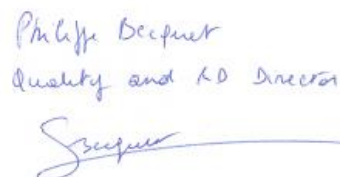 Philippe Becquet
Quality and RD Director
Becquet